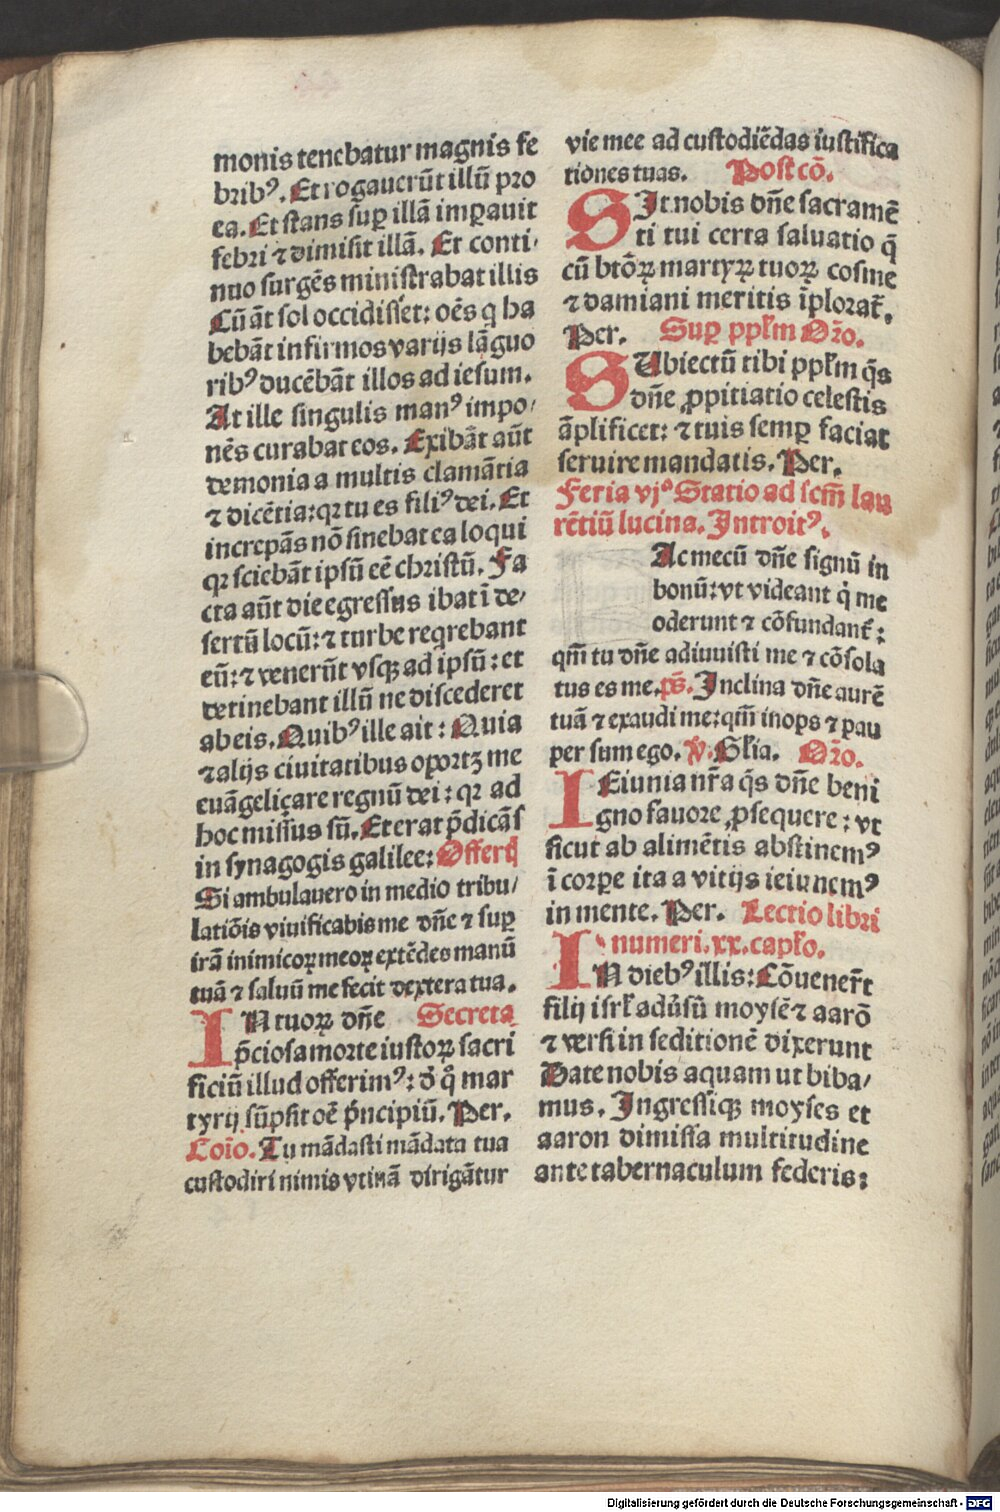 monis tenebatur magnis fe
bribꝰ. Et rogauerūt illū pro
ea. Et stans suꝑ illā imꝑauit
febri ⁊ dimisit illā. Et conti-
nuo surgēs ministrabat illis
Cū āt sol occidisset: oēs q̄ ha
bebāt infirmos varijs lāguo
ribꝰ ducēbāt illos ad iesum.
At ille singulis manꝰ impo-
nēs curabat eos. Exibāt aūt
demonia a multis clamātia
⁊ dicētia: qꝛ tu es filiꝰ dei. Et
increpās nō sinebat ea loqui
qꝛ sciebāt ipsū eē christū. Fa
cta aūt die egressus ibat ī de-
sertū locū: ⁊ turbe reqrebant
eū: ⁊ venerūt vsqꝫ ad ipsū: et
detinebant illū ne discederet
ab eis. Quibꝰ ille ait: Quia
⁊ alijs ciuitatibus oportꝫ me
euāgelicare regnū dei: qꝛ ad
hoc missus sū. Et erat p̄dicās
in synagogis galilee: Offertꝭ
Si ambulauero in medio tribu-
latiōis viuificabis me dn̄e ⁊ suꝑ
irā inimicoꝝ meoꝝ extēdes manū
tuā ⁊ saluū me fecit dextera tua.
IN tuoꝝ dn̄e Secreta
p̄ciosa morte iustoꝝ sacri
ficiū illud offerimꝰ: d̓ q̄ mar
tyrij sūpsit oē pⁱncipiū. Per.
Coīo. Tu mādasti mādata tua
custodiri nimis vtinā dirigātur
vie mee ad custodiēdas iustifica
tiones tuas. Post cō.
SIt nobis dn̄e sacramē
ti tui certa saluatio q̄
cū btōꝝ martyꝝ tuoꝝ cosme
⁊ damiani meritis īplorat̄.
Per. Suꝑ pplm Oꝛo.
SUbiectū tibi pplm q̄s
dn̄e ꝓpitiatio celestis
āplificet: ⁊ tuis semꝑ faciat
seruire mandatis. Per.
Feria vjͦ Statio ad scm̄ lau
rētiū lucina. Introitꝰ.
Ac mecū dn̄e signū in
bonū: vt videant qⁱ me
oderunt ⁊ cōfundant̄:
qm̄ tu dn̄e adiuuisti me ⁊ cōsola
tus es me. ps̄. Inclina dn̄e aurē
tuā ⁊ exaudi me: qm̄ inops ⁊ pau
per sum ego. v̄. Glia. Oꝛo.
IEiunia nr̄a q̄s dn̄e beni
gno fauore ꝓsequere: vt
sicut ab alimētis abstinemꝰ
ī corpꝑe ita a vitijs ieiunemꝰ
in mente. Per. Lectio libri
numeri. xx. caplo.
IN diebꝰ illis: Cōuener̄t
filij isrl aduͥsū moysē ⁊ aarō
⁊ versi in seditionē dixerunt
Date nobis aquam ut biba-
mus. Ingressiqꝫ moyses et
aaron dimissa multitudine
ante tabernaculum federis:
Digitalisierung gefördert durch die Deutsche Forschungsgemeinschaft - DFG